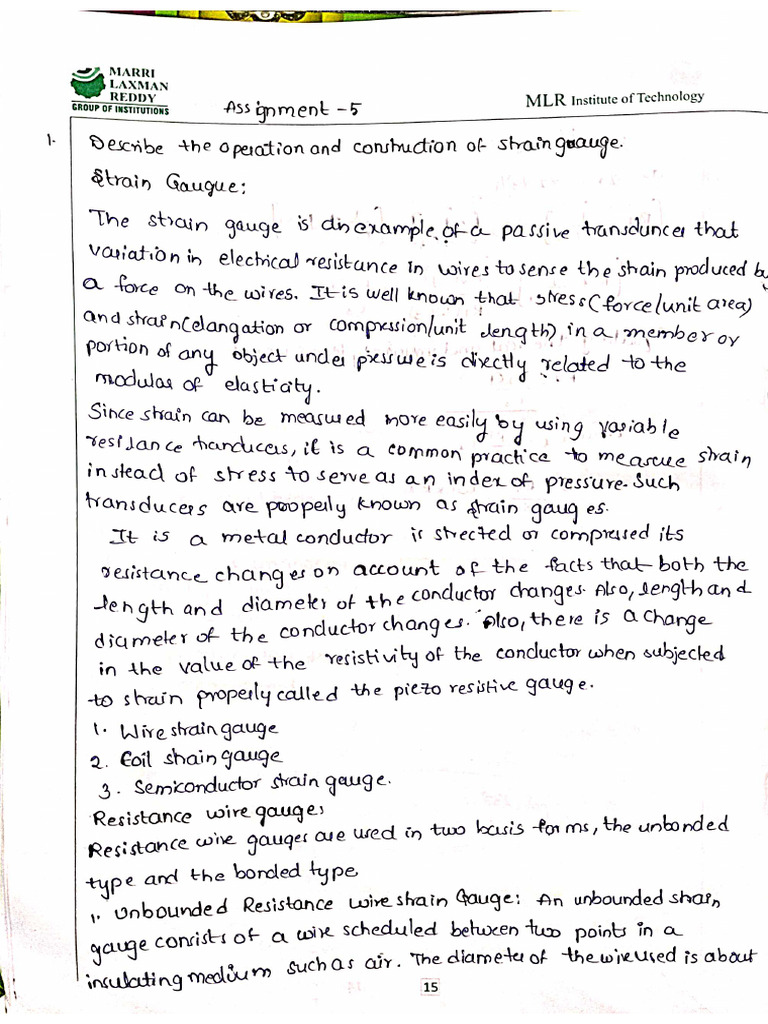 MARRI
LAXMAN
REDDY
GROUP OF INSTITUTIONS
Assignment -5
MLR Institute of Technology
1. Describe the operation and constuction of strain guauge.
Strain Gaugue:
The strain gauge is an example of a passive transduncer that
variation in electrical resistance in wires to sense the strain produced by
a force on the wires. It is well known that stress(force/unit area)
and strain(elangation or compression/unit length), in a member or
portion of any object under pressure is directly related to the
modulas of elasticity.
Since strain can be measured more easily by using variable
resistance tranducers, it is a common practice to measure strain
instead of stress to serve as an index of pressure. Such
transducers are pooperly known as strain gauges.
It is a metal conductor is strected or compressed its
resistance changes on account of the facts that both the
length and diameter of the conductor changes. Also, length and
diameter of the conductor changes. Also, there is a change
in the value of the resistivity of the conductor when subjected
to strain properly called the piezo resistive gauge.
1. Wire strain gauge
2. Foil strain gauge
3. Semiconductor strain gauge.
Resistance wire gauge:
Resistance wire gauges are used in two basis forms, the unbonded
type and the bonded type
1. Unbounded Resistance wire strain Gauge: An unbounded strain
gauge consists of a wire scheduled between two points in a
insulating medium such as air. The diameter of the wire used is about
15